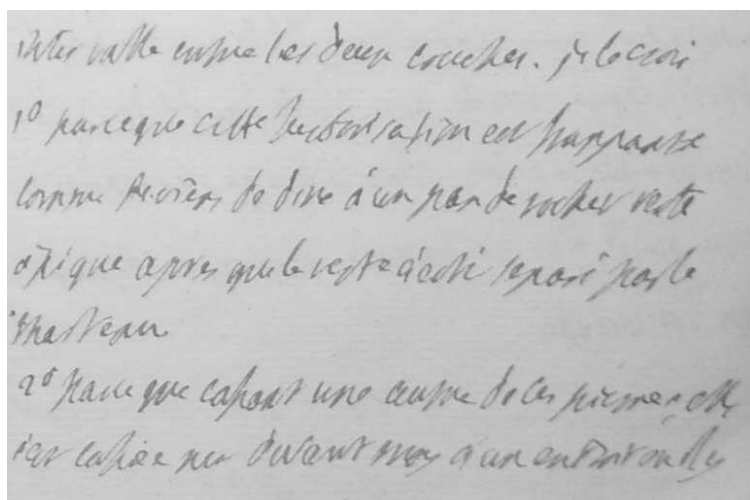 intervalle entre les deux couches. je le crois
1º parceque cette heurtorisation est frappante
comme je viens de dire à un pan de rocher resté
à pique apres que le reste a été separé par le
marteau
2º parce que cassant une autre de ces pierres elle
s'est cassée net devant moy d'un endroit où il y